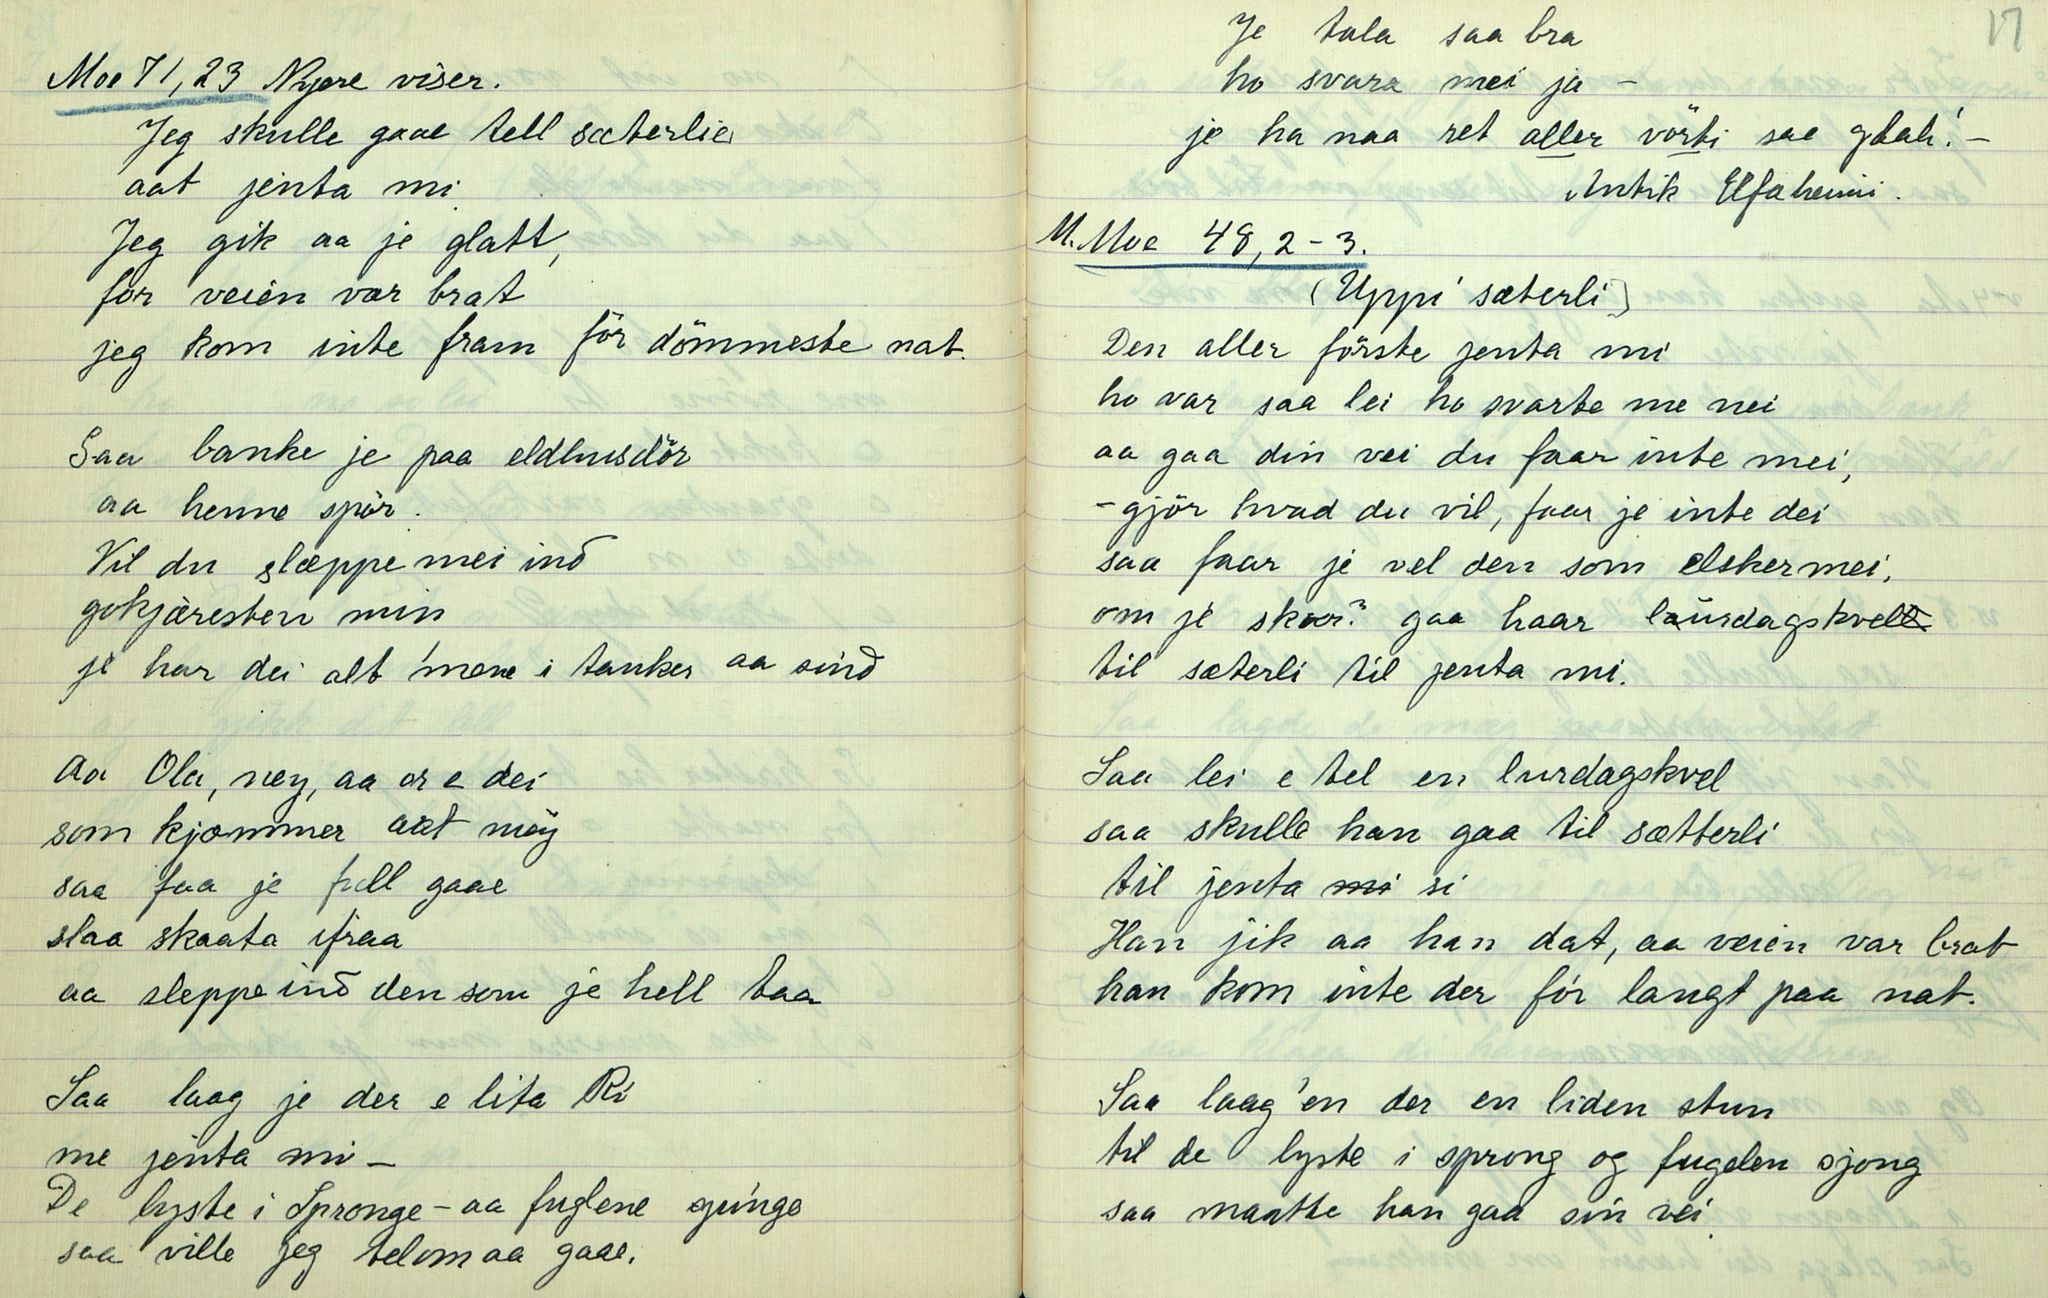 Moe 71, 23 Nyere viser.
Jeg skulle gaae tell sæterlie
aat jenta mi
Jeg gik aa je glatt,
før veien var brat
jeg kom inte fram för dömmeste nat.
Saa banke je paa eldhusdör
aa henne spör.
Vil du slæppe mei ind
gokjæresten min
je har dei alt 'mene i tanker aa sind
Aa Ola, ney, aa er e dei
som kjømmer aat mey
saa faa je full gaae
slaa skaata ifraa
aa sleppe ind den som je hell taa
Saa laag je der e lita Ri
me jenta mi –
De lyste i Spronge – aa fuglene sjunge
saa ville jeg telom aa gaae.
17
Je tala saa bra
ho svara mei ja –
je ha naa ret aller vörti saa glah! –
Antik Elfaheimi.
M. Moe 48, 2-3.
(Uppi sæterli)
Den aller förste jenta mi
ho var saa lei ho svarte me nei
aa gaa din vei du faar inte mei,
– gjör hvad du vil, faar je inte dei
saa faar je vel den som elsker mei,
om je skoer? gaa haar laurdagskvell
til sæterli til jenta mi.
Saa lei e tel en lurdagskvel
saa skulle han gaa til sætterli
til jenta mi si
Han jik aa han dat, aa veien var brat
han kom inte derför langt paa nat.
Saa laag'en der en liden stun
til de lyste i sprong og fugelen sjong
saa maatte han gaa sin vei.